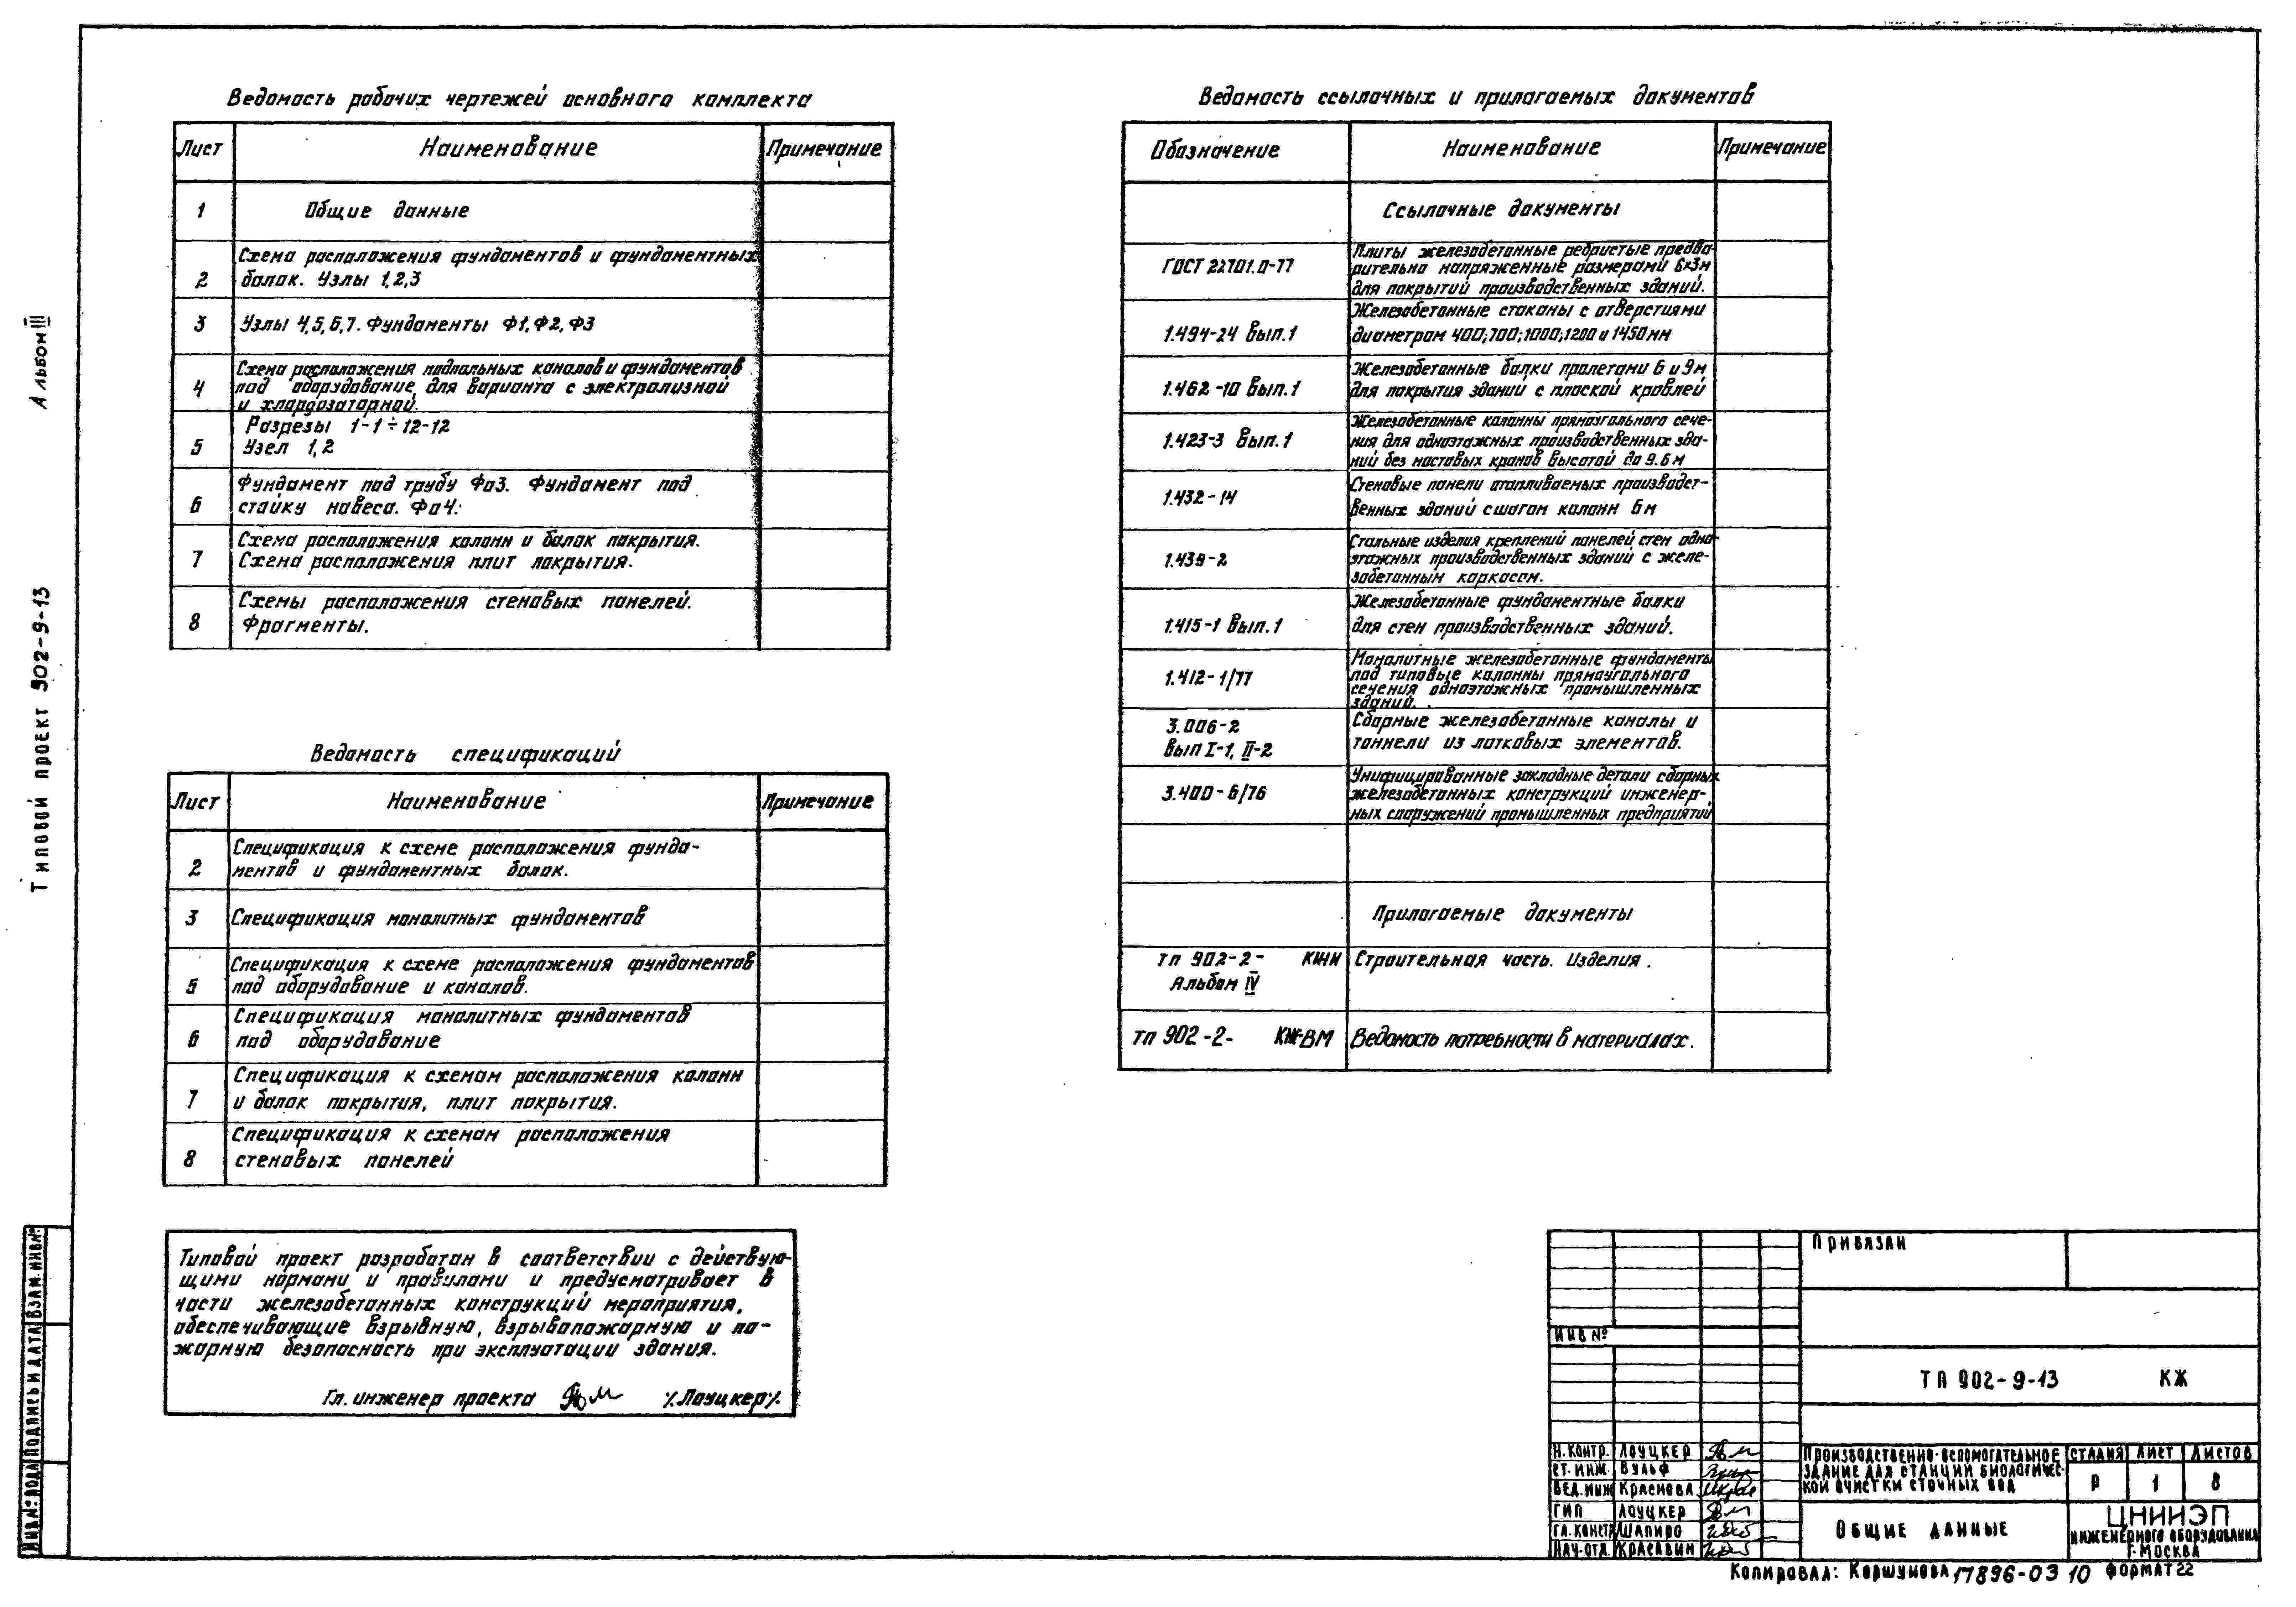 Альбом III
Типовой проект 902-9-13
Ведомость рабочих чертежей основного комплекта
Лист Наименование Примечание
1 Общие данные
Схема расположения фундаментов и фундаментных
2 балок. Узлы 1,2,3
3 Узлы 4,5,6,7. Фундаменты Ф1, Ф2, Ф3
Схема расположения подпольных каналов и фундаментов
4 под оборудование для варианта с электролизной
и хлордозаторной.
Разрезы 1-1÷12-12
5 Узел 1,2
Фундамент под трубу Фо3. Фундамент под
6 стойку навеса. Фо4.
Схема расположения колонн и балок покрытия.
7 Схема расположения плит покрытия.
Схемы расположения стеновых панелей.
8 Фрагменты.
Ведомость спецификаций
Лист Наименование Примечание
Спецификация к схеме расположения фунда-
2 ментов и фундаментных балок.
3 Спецификация монолитных фундаментов
Спецификация к схеме расположения фундаментов
5 под оборудование и каналов.
Спецификация монолитных фундаментов
6 под оборудование
Спецификация к схемам расположения колонн
7 и балок покрытия, плит покрытия.
Спецификация к схемам расположения
8 стеновых панелей
Типовой проект разработан в соответствии с действую-
щими нормами и правилами и предусматривает в
части железобетонных конструкций мероприятия,
обеспечивающие взрывную, взрывопожарную и по-
жарную безопасность при эксплуатации здания.
Гл. инженер проекта /Лоуцкер/.
Ведомость ссылочных и прилагаемых документов
Обозначение Наименование Примечание
Ссылочные документы
Плиты железобетонные ребристые предва-
ГОСТ 22701.0-77 рительно напряженные размерами 6×3м
для покрытий производственных зданий.
Железобетонные стаканы с отверстиями
1.494-24 Вып.1 диаметром 400;700;1000;1200 и 1450мм
Железобетонные балки пролетами 6 и 9м
1.462-10 Вып.1 для покрытия зданий с плоской кровлей
Железобетонные колонны прямоугольного сече-
1.423-3 Вып.1 ния для одноэтажных производственных зда-
ний без мостовых кранов высотой до 9.6м
Стеновые панели отапливаемых производст-
1.432-14 венных зданий с шагом колонн 6м
Стальные изделия креплений панелей стен одно-
1.439-2 этажных производственных зданий с желе-
зобетонным каркасом.
Железобетонные фундаментные балки
1.415-1 Вып.1 для стен производственных зданий.
Монолитные железобетонные фундаменты
1.412-1/77 под типовые колонны прямоугольного
сечения одноэтажных промышленных
зданий.
3.006-2 Сборные железобетонные каналы и
Вып I-1, II-2 тоннели из лотковых элементов.
Унифицированные закладные детали сборных
3.400-6/76 железобетонных конструкций инженер-
ных сооружений промышленных предприятий
Прилагаемые документы
ТП 902-2- КЖИ Строительная часть. Изделия.
Альбом IV
ТП 902-2- КЖ-ВМ Ведомость потребности в материалах.
Привязан
ИНВ №
ТП 902-9-13 КЖ
Н.контр. Лоуцкер
Ст.инж. Вульф
Вед.инж Краснова
ГИП Лоуцкер
Гл.констр Шапиро
Нач.отд. Красавин
Производственно-вспомогательное
здание для станций биологичес-
кой очистки сточных вод
Стадия Лист Листов
Р 1 8
Общие данные
ЦНИИЭП
инженерного оборудования
г. Москва
Копировал: Коршунова 17896-03 10 Формат 22
ИНВ.№ подл. Подпись и дата Взам.инв.№